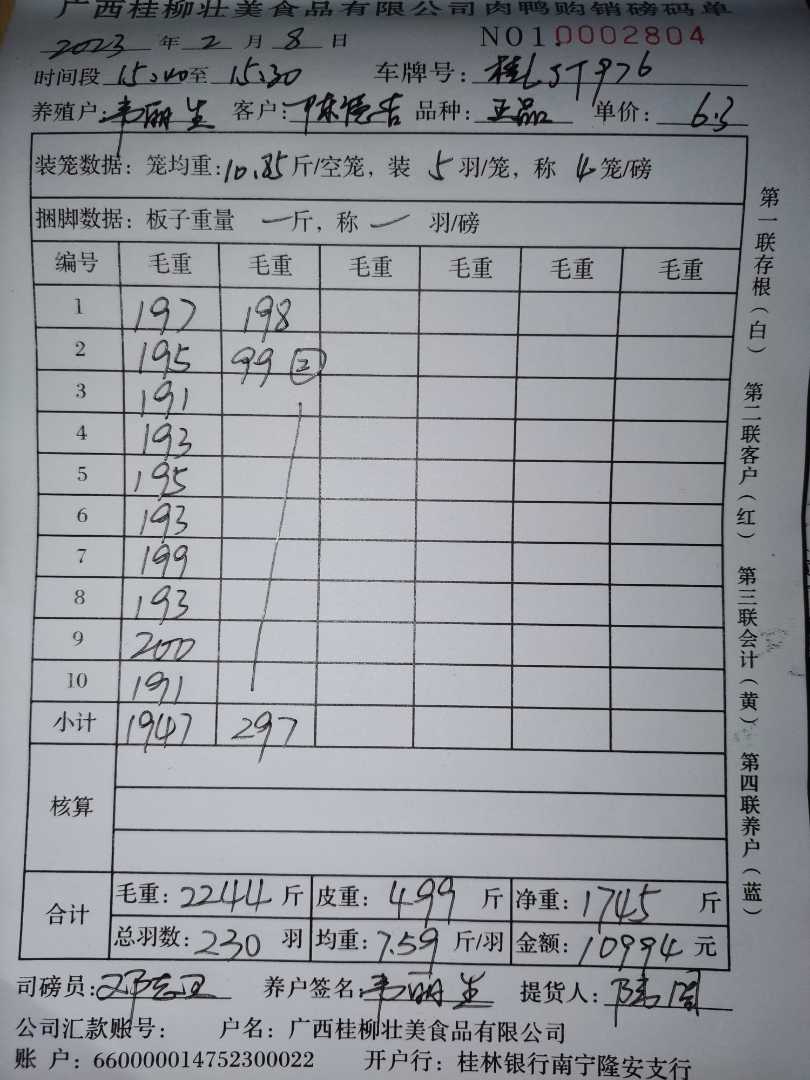 广西桂柳壮美食品有限公司肉鸭购销磅码单
2023 年 2 月 8 日 NO1.0002804
时间段 15:00至 15:30 车牌号: 桂LJT976
养殖户: 韦丽生 客户: 陈德吉 品种: 正品 单价: 6.3
装笼数据: 笼均重: 10.85 斤/空笼, 装 5 羽/笼, 称 4 笼/磅
捆脚数据: 板子重量 一 斤, 称 一 羽/磅
编号 毛重 毛重 毛重 毛重 毛重 毛重
1 197 198
2 195 99 ②
3 191
4 193
5 195
6 193
7 199
8 193
9 200
10 191
小计 1947 297
核算
合计 毛重: 2244 斤 皮重: 499 斤 净重: 1745 斤
总羽数: 230 羽 均重: 7.59 斤/羽 金额: 10994 元
司磅员: 养户签名: 韦丽生 提货人:
公司汇款账号: 户名: 广西桂柳壮美食品有限公司
账 户: 660000014752300022 开户行: 桂林银行南宁隆安支行
第一联存根(白) 第二联客户(红) 第三联会计(黄) 第四联养户(蓝)